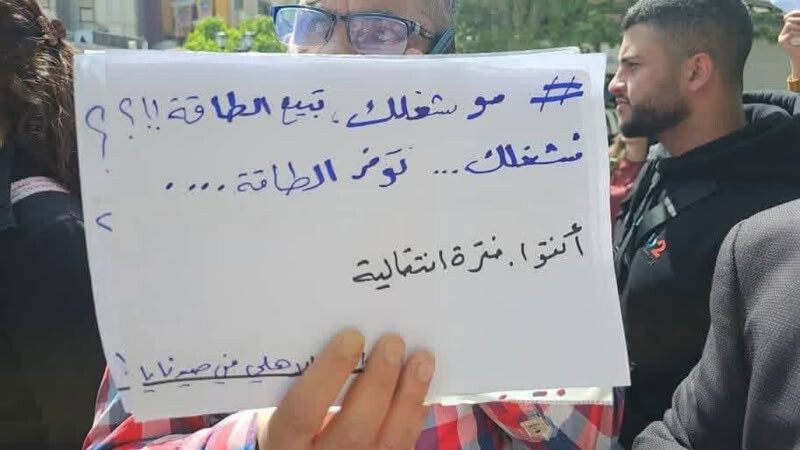 # مو شغلك، تبيع الطاقة!!؟؟؟
شغلك... توفر الطاقة....
أنتوا. فترة انتقالية
الاهلي في صيدنايا !